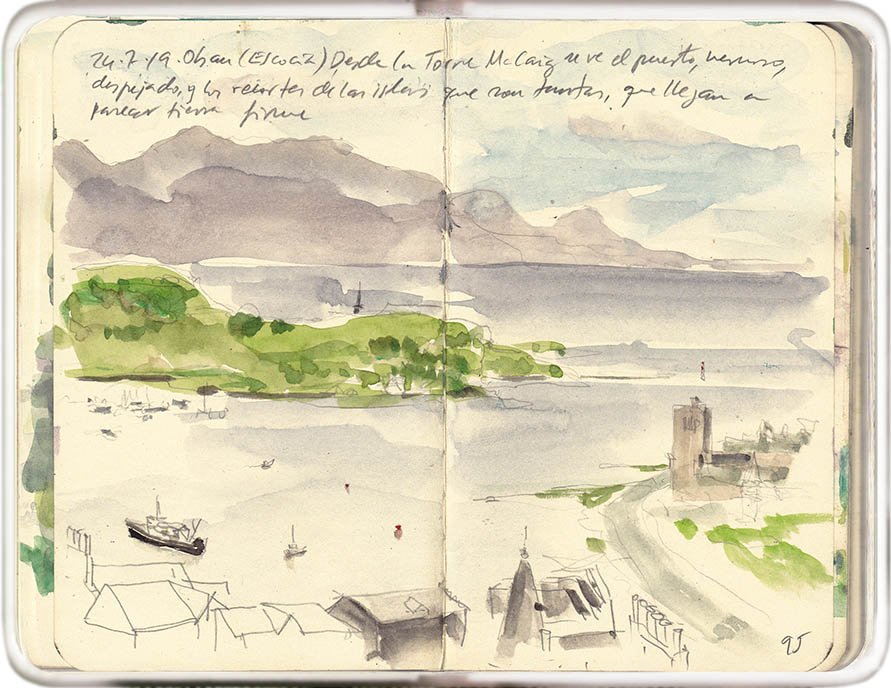 24.7.19. Oban (Escocia) Desde la Torre McCaig se ve el puerto, hermoso,
despejado, y los recortes de las islas que son tantas, que llegan a
parecer tierra firme
95